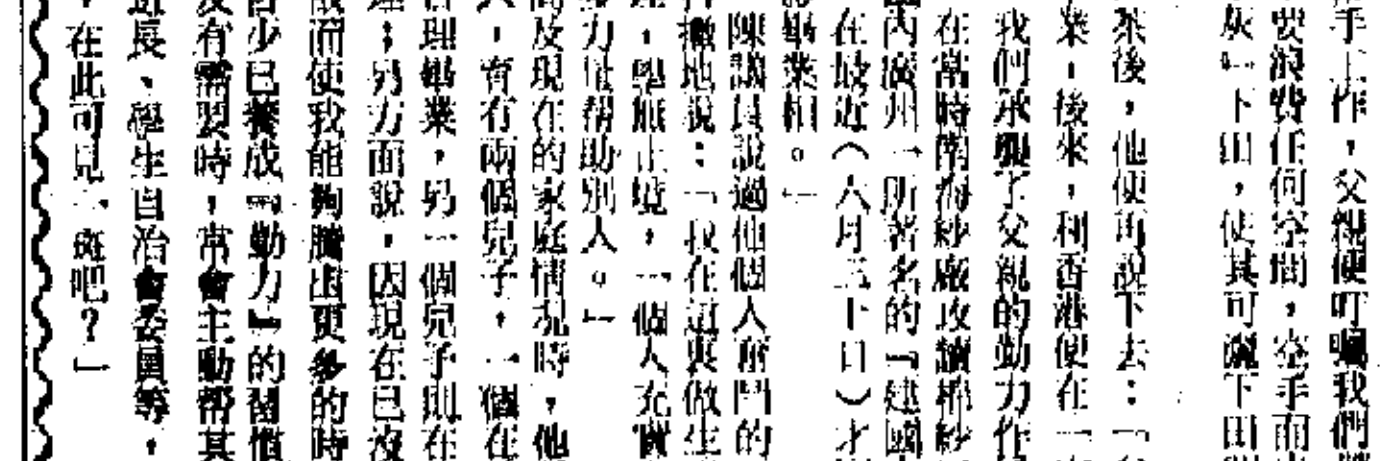 手工作，父親便叮囑我們
要浪費任何空間，空手而
灰一下田，使其可灑下田
茶後，他便再說下去：「
業，後來，到香港便在一
我們承襲了父親的勤力作
在當時南海紗廠攻讀棉紗
國內廣州一所著名的「建國
在最近（八月三十日）才
畢業相。」
陳議員說過他個人奮鬥的
撇地說：「我在這裏做生
，學無止境，一個人充實
力量幫助別人。」
及現在的家庭情况時，他
人，育有兩個兒子，一個在
理畢業，另一個兒子則在
；另方面說，因現在已沒
而使我能夠騰出更多的時
少已養成『勤力』的習慣
有需要時，常會主動幫其
長、學生自治會委員等，
，在此可見一斑吧？」